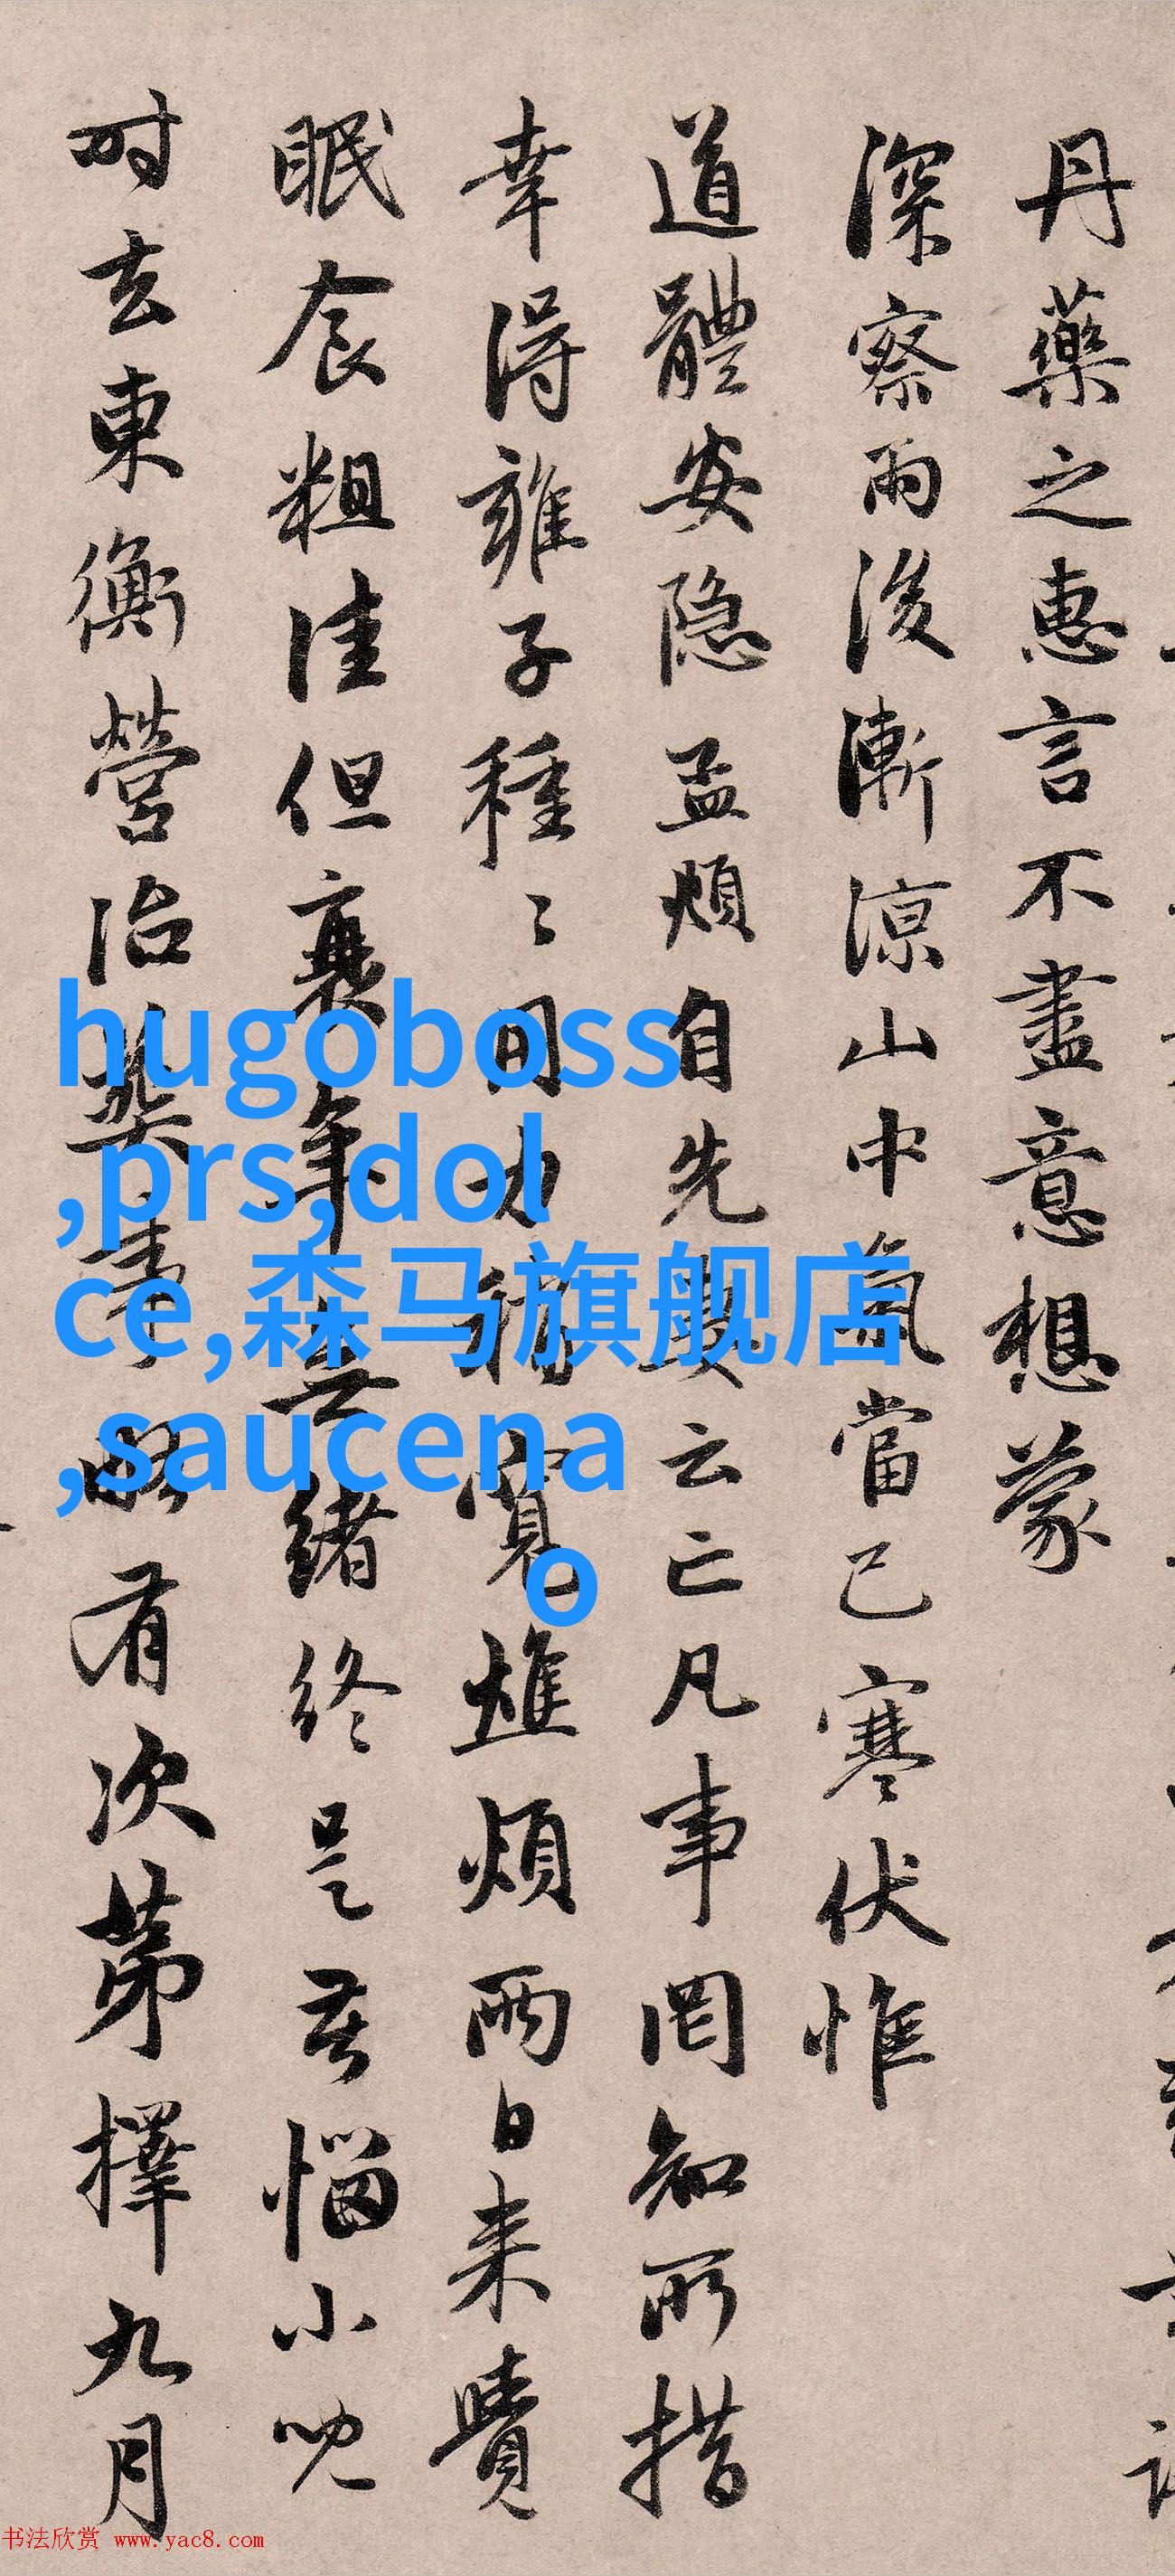 丹藥之惠言不盡意想蒙
深察雨後漸涼山中氣當已寒伏惟
道體安隐孟頫自先妻云亡凡事罔知所措
幸得雍子種〻用力稍寬熬煩兩日来覺
眠食粗佳但衰年無緒終是苦惱小兒
时去東衡營治葬事略有次第擇九月
hugoboss
,prs,dol
ce,森马旗舰店
,saucena
o
书法欣赏 www.yac8.com